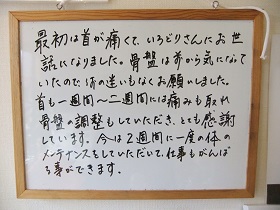 最初は首が痛くて、いろどりさんにお世
話になりました。骨盤は前から気になって
いたので、何の迷いもなくお願いしました。
首も一週間〜二週間には痛みも取れ
骨盤の調整もしていただき、とても感謝
しています。今は2週間に一度の体の
メンテナンスをしていただいて、仕事もがんば
る事ができます。